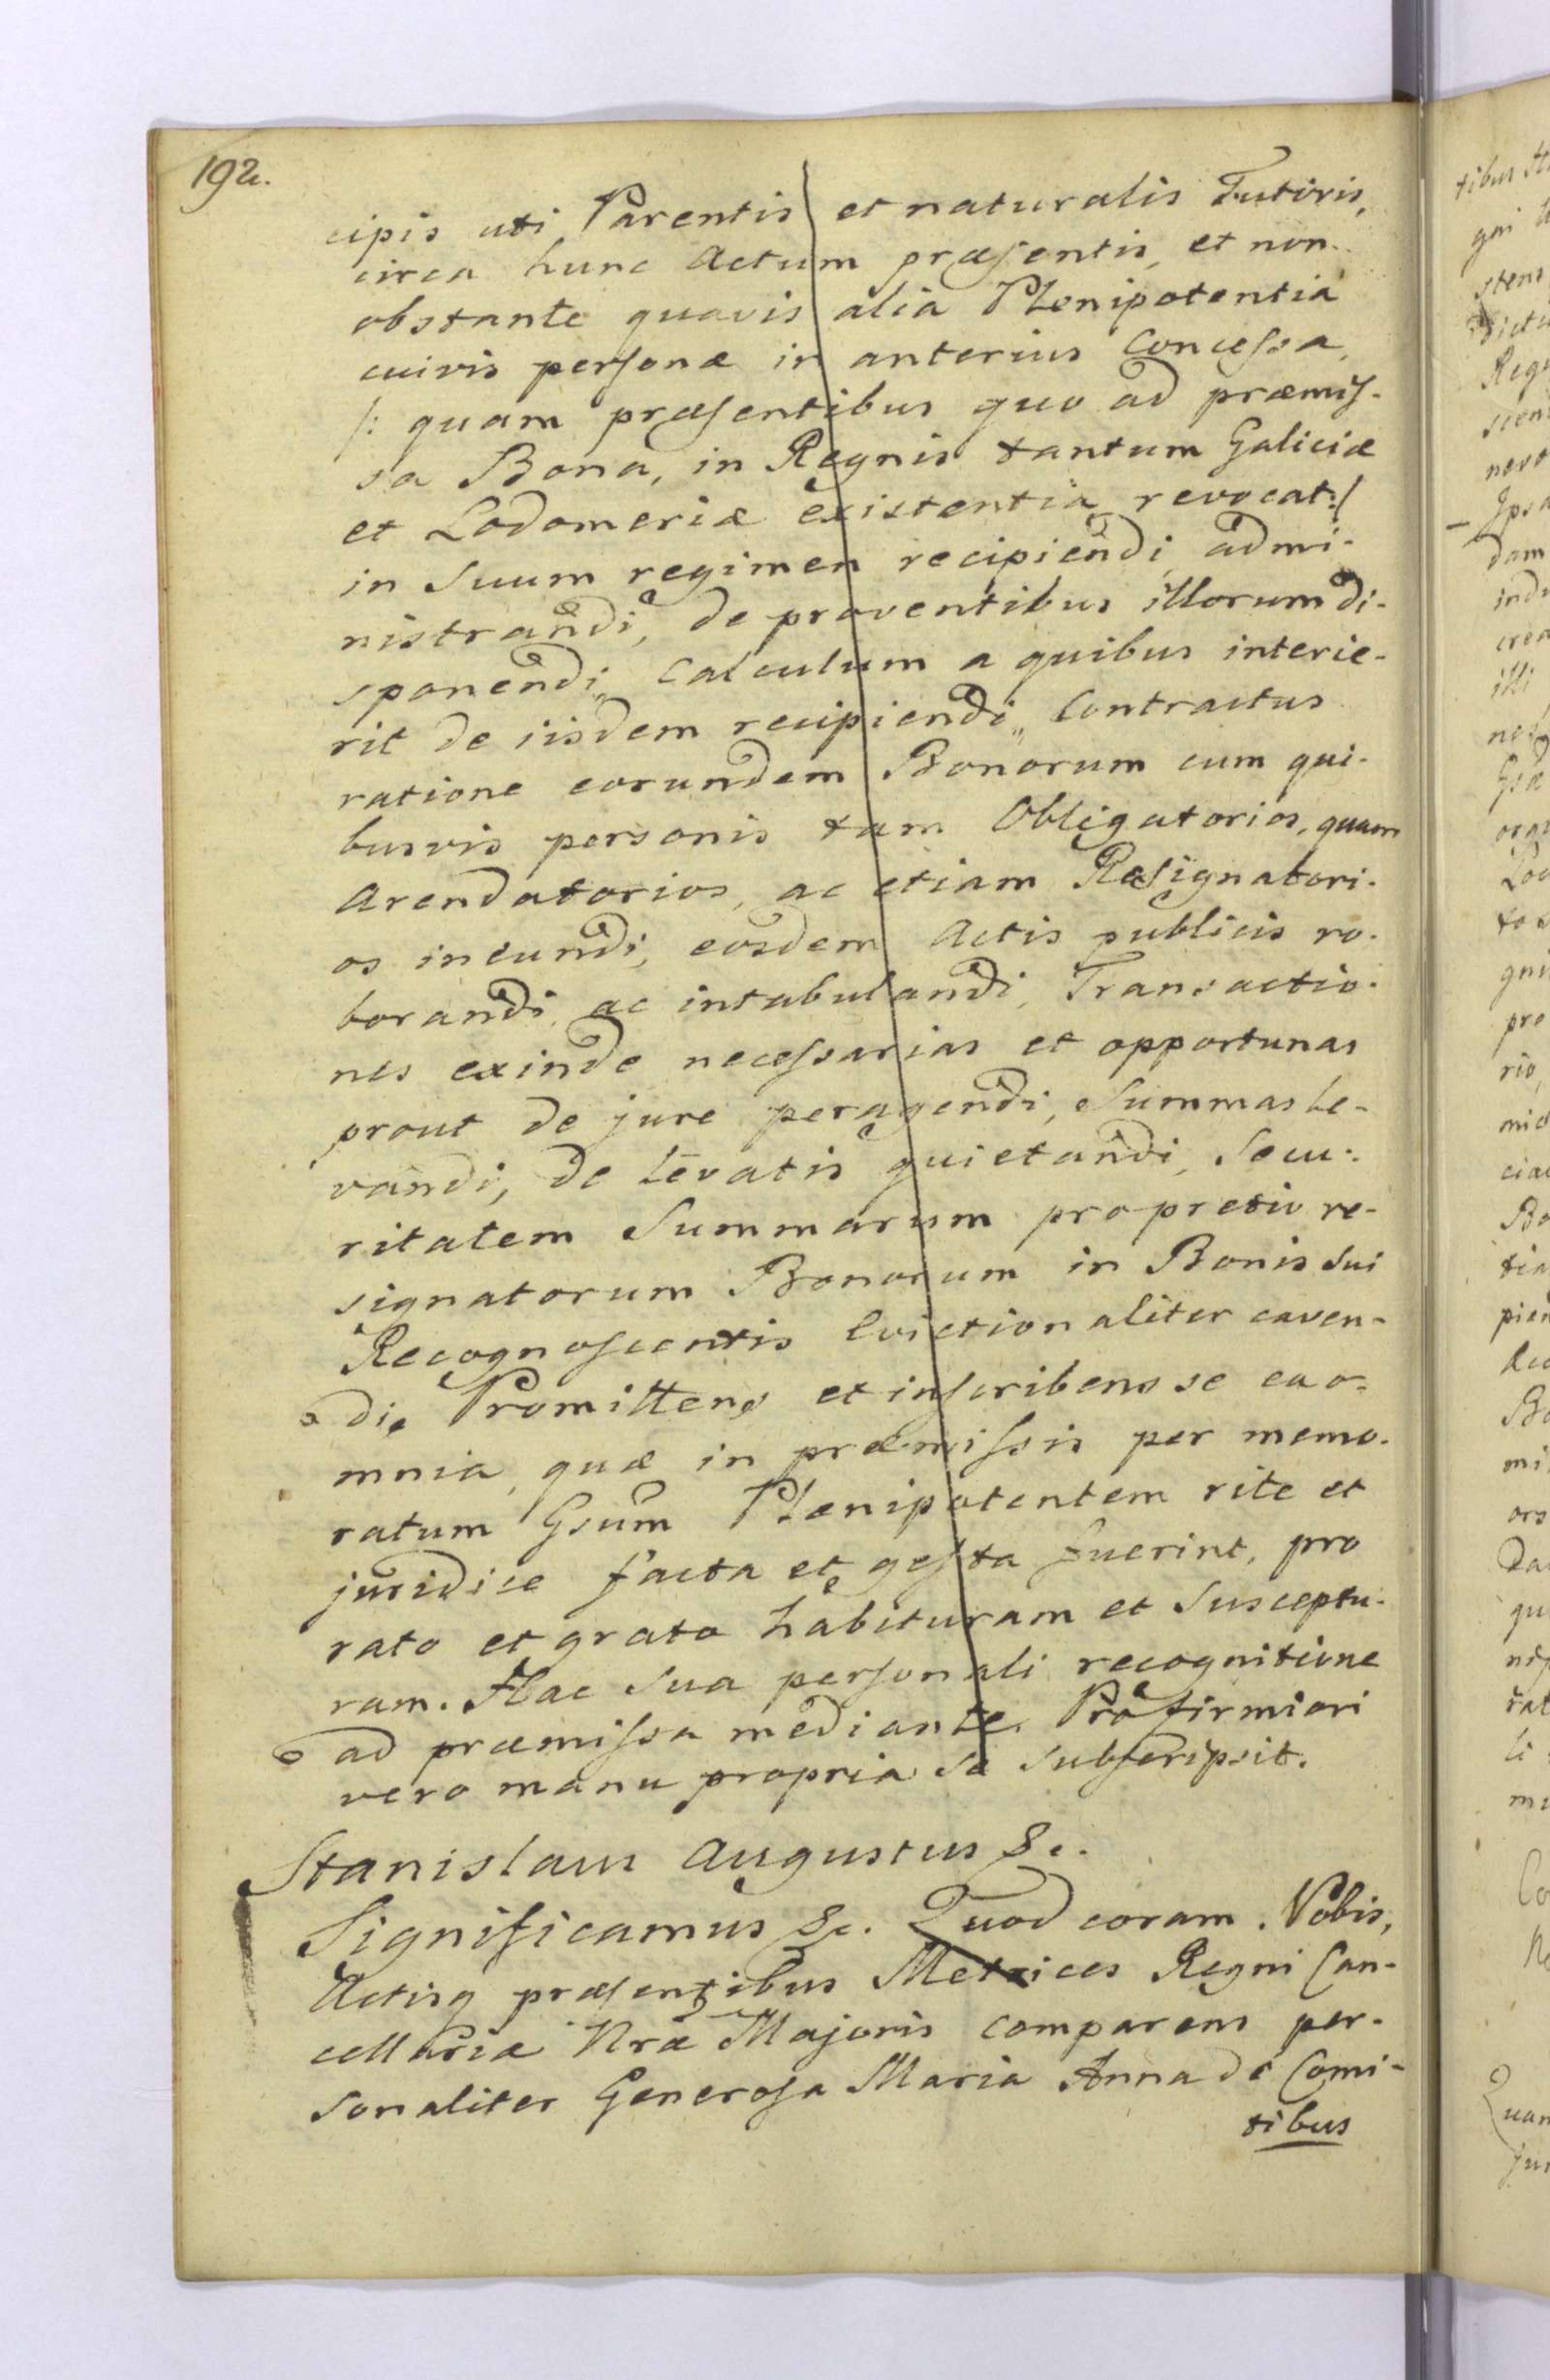 192.
cipis uti Parentis et naturalis Tutoris,
circa hunc Actum præsentis, et non
obstante quavis alia Plenipotentia
cuivis personæ in anterius Concessa,
/: quam præsentibus quo ad præmis-
sa Bona, in Regnis tantum Galiciæ
et Lodomeriæ existentia revocat :/
in Suum regimen recipiendi, admi-
nistrandi, de proventibus illorum di-
sponendi, Calculum a quibus interie-
rit de iisdem recipiendi, Contractus
ratione eorundem Bonorum cum qui-
busvis personis tam Obligatorios, quam
Arendatorios, ac etiam Resignatori-
os ineundi, eosdem Actis publicis ro-
borandi, ac intabulandi, Transactio-
nes exinde necessarias et opportunas
prout de jure peragendi, Summas le-
vandi, de levatis quietandi, Secu-
ritatem Summarum pro pretio re-
signatorum Bonorum in Bonis Sui
Recognoscentis Evictionaliter caven-
di. Promittens et inscribens se ea o-
mnia, quæ in præmissis per memo-
ratum Gsum Plenipotentem rite et
juridice facta et gesta fuerint, pro
rato et grato habituram et Susceptu-
ram. Hac Sua personali recognitione
ad præmissa mediante. Pro firmiori
vero manu propria se Subscripsit.
Stanislaus Augustus &c.
Significamus &c. Quod coram Nobis,
Actisq præsentibus Metrices Regni Can-
cellariæ Nræ Majoris comparens per-
sonaliter Generosa Maria Anna de Comi-
tibus